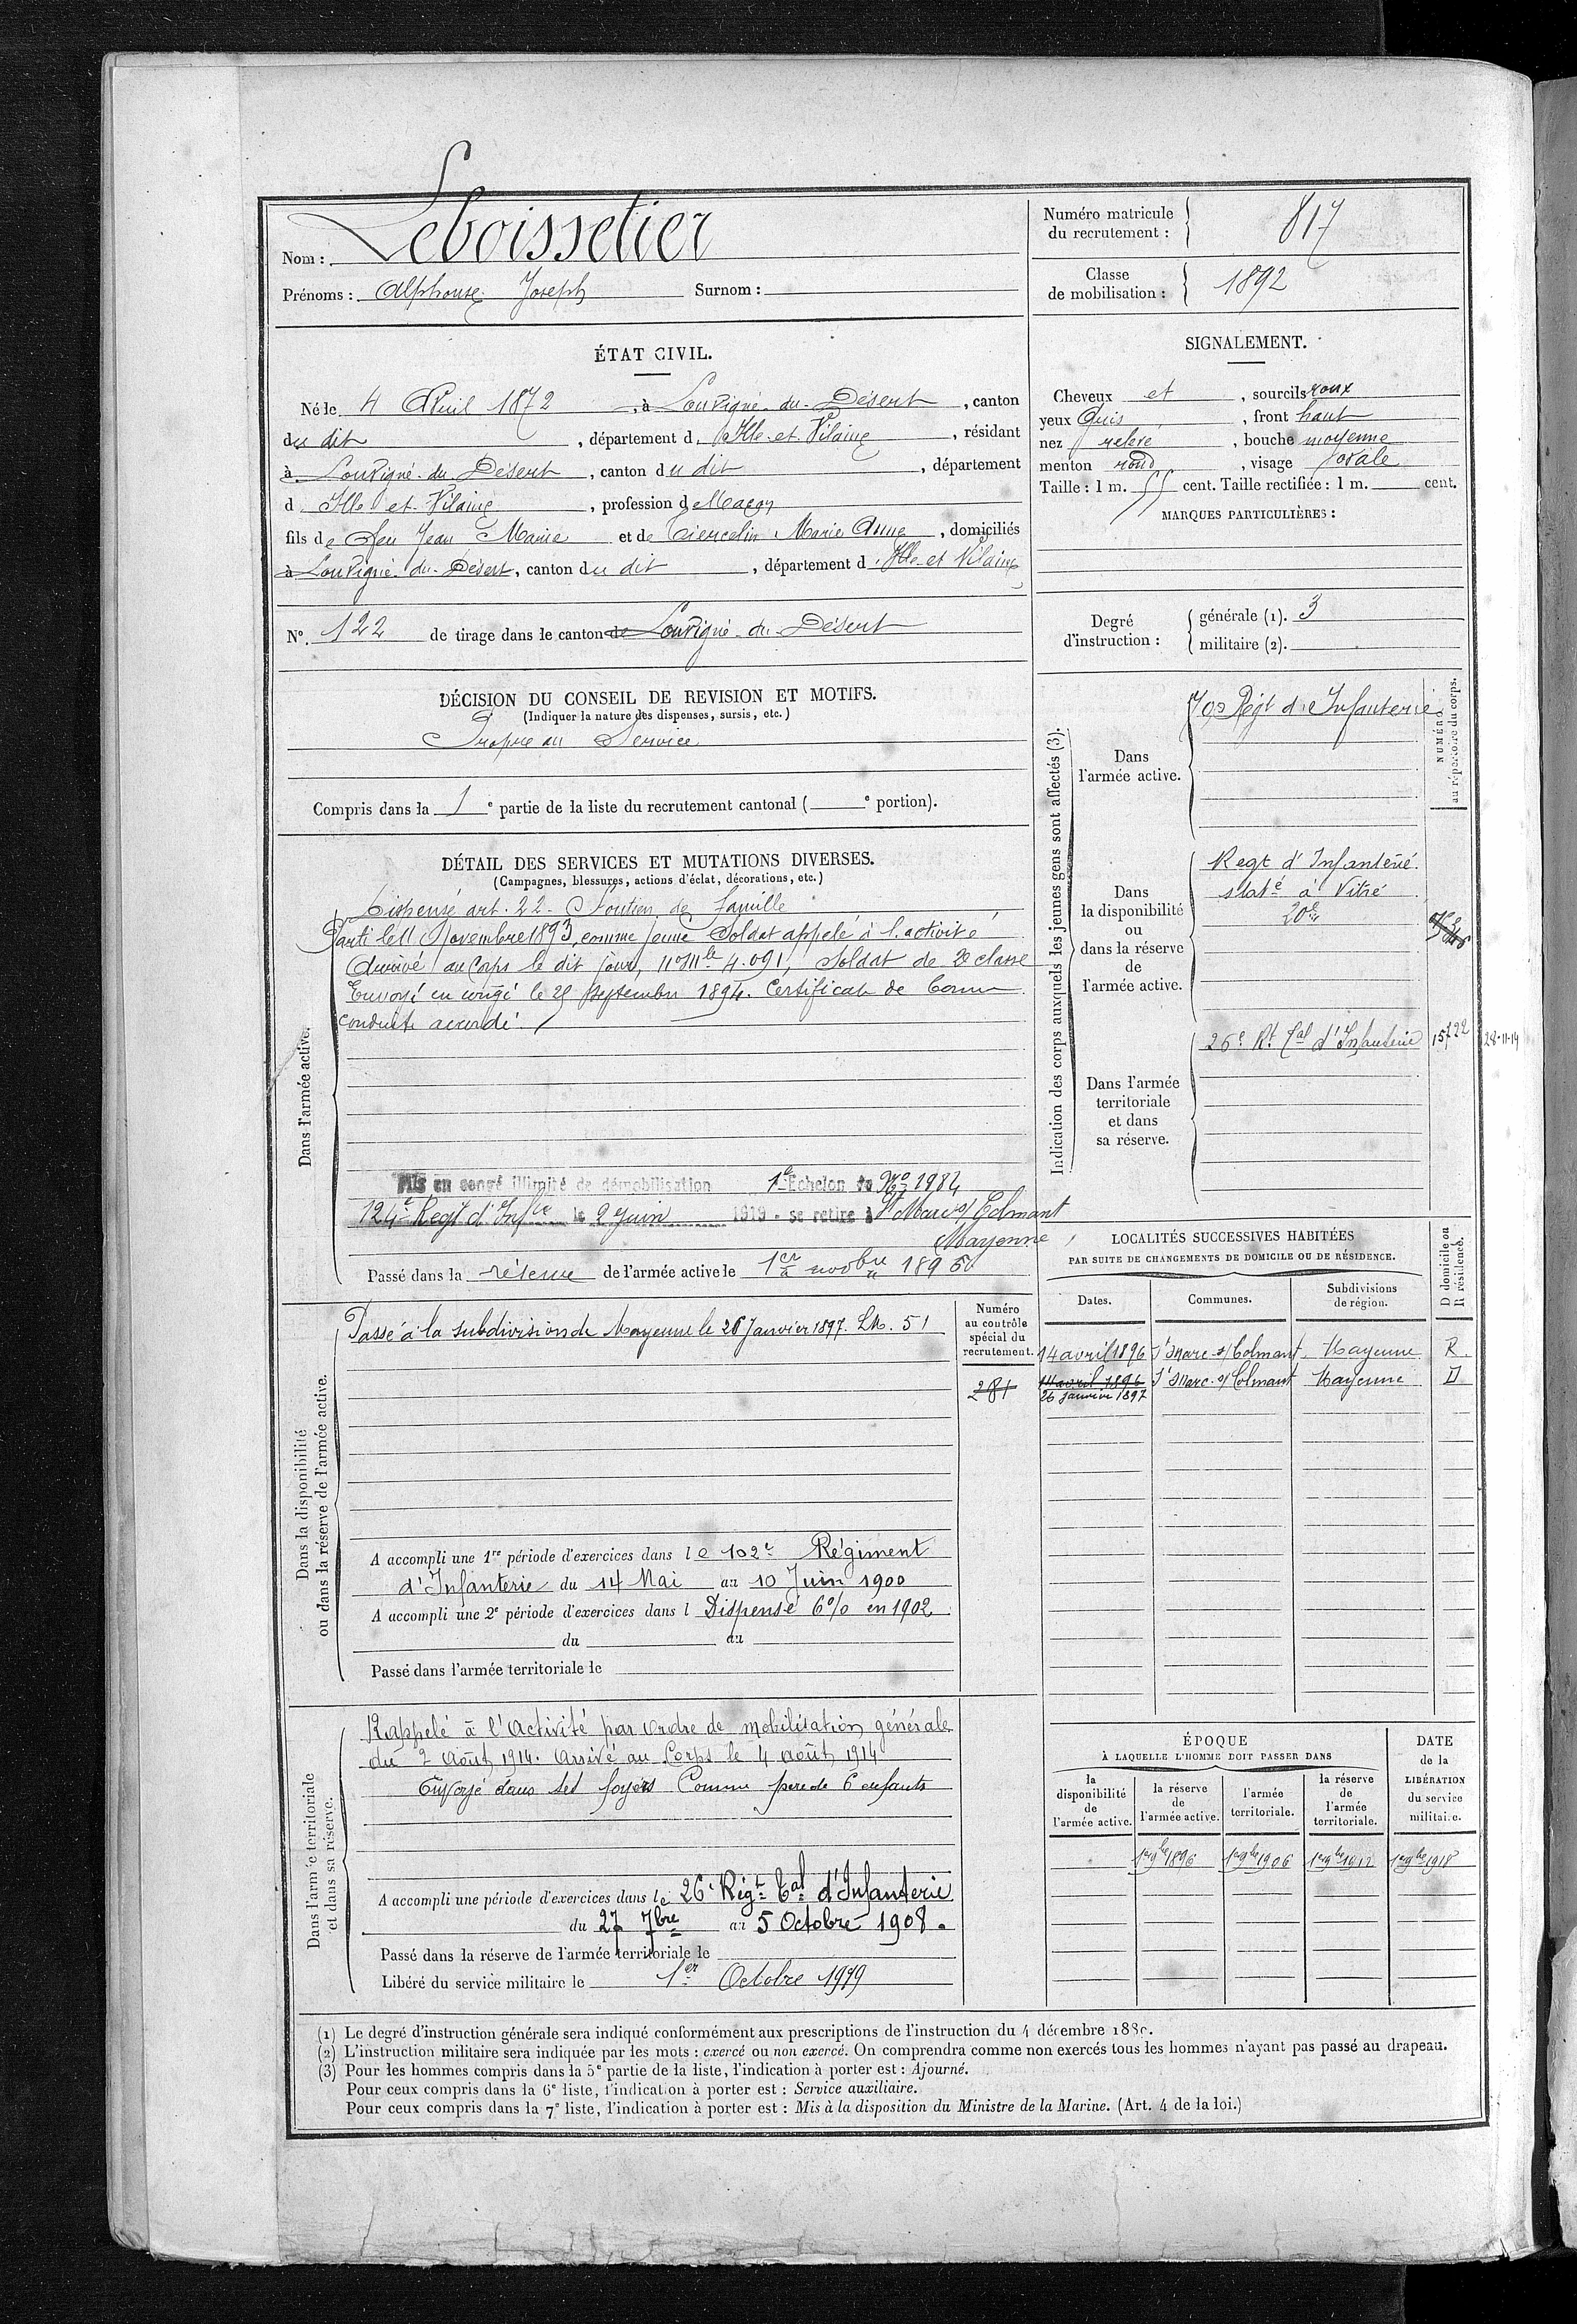 Nom : Leboissetier
Prénoms : Alphonse Joseph Surnom :
Numéro matricule
du recrutement : 817
Classe
de mobilisation : 1892
ÉTAT CIVIL.
Né le 4 Avril 1872, à Louvigné-du-Désert, canton
du dit, département d'Ille-et-Vilaine, résidant
à Louvigné-du-Désert, canton du dit, département
d'Ille et Vilaine, profession de Maçon
fils de feu Jean Marie et de Tiercelin Marie Anne, domiciliés
à Louvigné-du-Désert, canton du dit, département d'Ille et Vilaine
N° 122 de tirage dans le canton de Louvigné-du-Désert
SIGNALEMENT.
Cheveux et, sourcils roux
yeux Gris, front haut
nez relevé, bouche moyenne
menton rond, visage ovale
Taille : 1 m. 55 cent. Taille rectifiée : 1 m. cent.
MARQUES PARTICULIÈRES :
Degré
d'instruction :
générale (1). 3
militaire (2).
DÉCISION DU CONSEIL DE REVISION ET MOTIFS.
(Indiquer la nature des dispenses, sursis, etc.)
Propre au Service
Compris dans la 1e partie de la liste du recrutement cantonal ( e portion).
DÉTAIL DES SERVICES ET MUTATIONS DIVERSES.
(Campagnes, blessures, actions d'éclat, décorations, etc.)
Dans l'armée active.
Dispensé art. 22. Soutien de famille
Parti le 11 Novembre 1893, comme jeune Soldat appelé à l'activité
Arrivé au Corps le dit jour, n° Mle 4.091, Soldat de 2e classe
Envoyé en congé le septembre 1894. Certificat de bonne
conduite accordé.
Mis en congé illimité de démobilisation 1e Echelon 1984
124e Regt d'Infie le 2 Juin 1919 - se retire à St Mars s/ Colmont
Mayenne
Passé dans la réserve de l'armée active le 1er novbre 1896
Indication des corps auxquels les jeunes gens sont affectés (3).
NUMÉRO
au répertoire du corps.
Dans
l'armée active.
70e Régt d'Infanterie
Dans
la disponibilité
ou
dans la réserve
de
l'armée active.
Regt d'Infanterie
staté à Vitré
Dans l'armée
territoriale
et dans
sa réserve.
26e Rt tal d'Infanterie 15722
28-11-14
LOCALITÉS SUCCESSIVES HABITÉES
PAR SUITE DE CHANGEMENTS DE DOMICILE OU DE RÉSIDENCE.
Dates. Communes. Subdivisions
de région.
D domicile ou
R résidence.
14 avril 1896 St Mars s/ Colmont Mayenne R.
14 avril 1896
26 janvier 1897 St Mars s/ Colmont Mayenne D
Dans la disponibilité
ou dans la réserve de l'armée active.
Passé à la subdivision de Mayenne le 26 Janvier 1897. LM. 51
Numéro
au contrôle
spécial du
recrutement.
281
A accompli une 1re période d'exercices dans le 102e Régiment
d'Infanterie du 14 Mai au 10 Juin 1900
A accompli une 2e période d'exercices dans l Dispensé 6% en 1902
du au
Passé dans l'armée territoriale le
Dans l'armée territoriale
et dans sa réserve.
Rappelé à l'Activité par ordre de mobilisation générale
du 2 Août 1914. Arrivé au Corps le 4 août 1914
Envoyé dans ses foyers Comme père de 6 enfants
A accompli une période d'exercices dans le 26e Régt tal d'Infanterie
du 27 7bre au 5 Octobre 1908.
Passé dans la réserve de l'armée territoriale le
Libéré du service militaire le 1er Octobre 1919
ÉPOQUE
À LAQUELLE L'HOMME DOIT PASSER DANS
la
disponibilité
de
l'armée active.
la réserve
de
l'armée active.
l'armée
territoriale.
la réserve
de
l'armée
territoriale.
DATE
de la
LIBÉRATION
du service
militaire.
1er 9bre 1896 1er 9bre 1906 1er 9bre 1912 1er 9bre 1918
(1) Le degré d'instruction générale sera indiqué conformément aux prescriptions de l'instruction du 4 décembre 1889.
(2) L'instruction militaire sera indiquée par les mots : exercé ou non exercé. On comprendra comme non exercés tous les hommes n'ayant pas passé au drapeau.
(3) Pour les hommes compris dans la 5e partie de la liste, l'indication à porter est : Ajourné.
Pour ceux compris dans la 6e liste, l'indication à porter est : Service auxiliaire.
Pour ceux compris dans la 7e liste, l'indication à porter est : Mis à la disposition du Ministre de la Marine. (Art. 4 de la loi.)